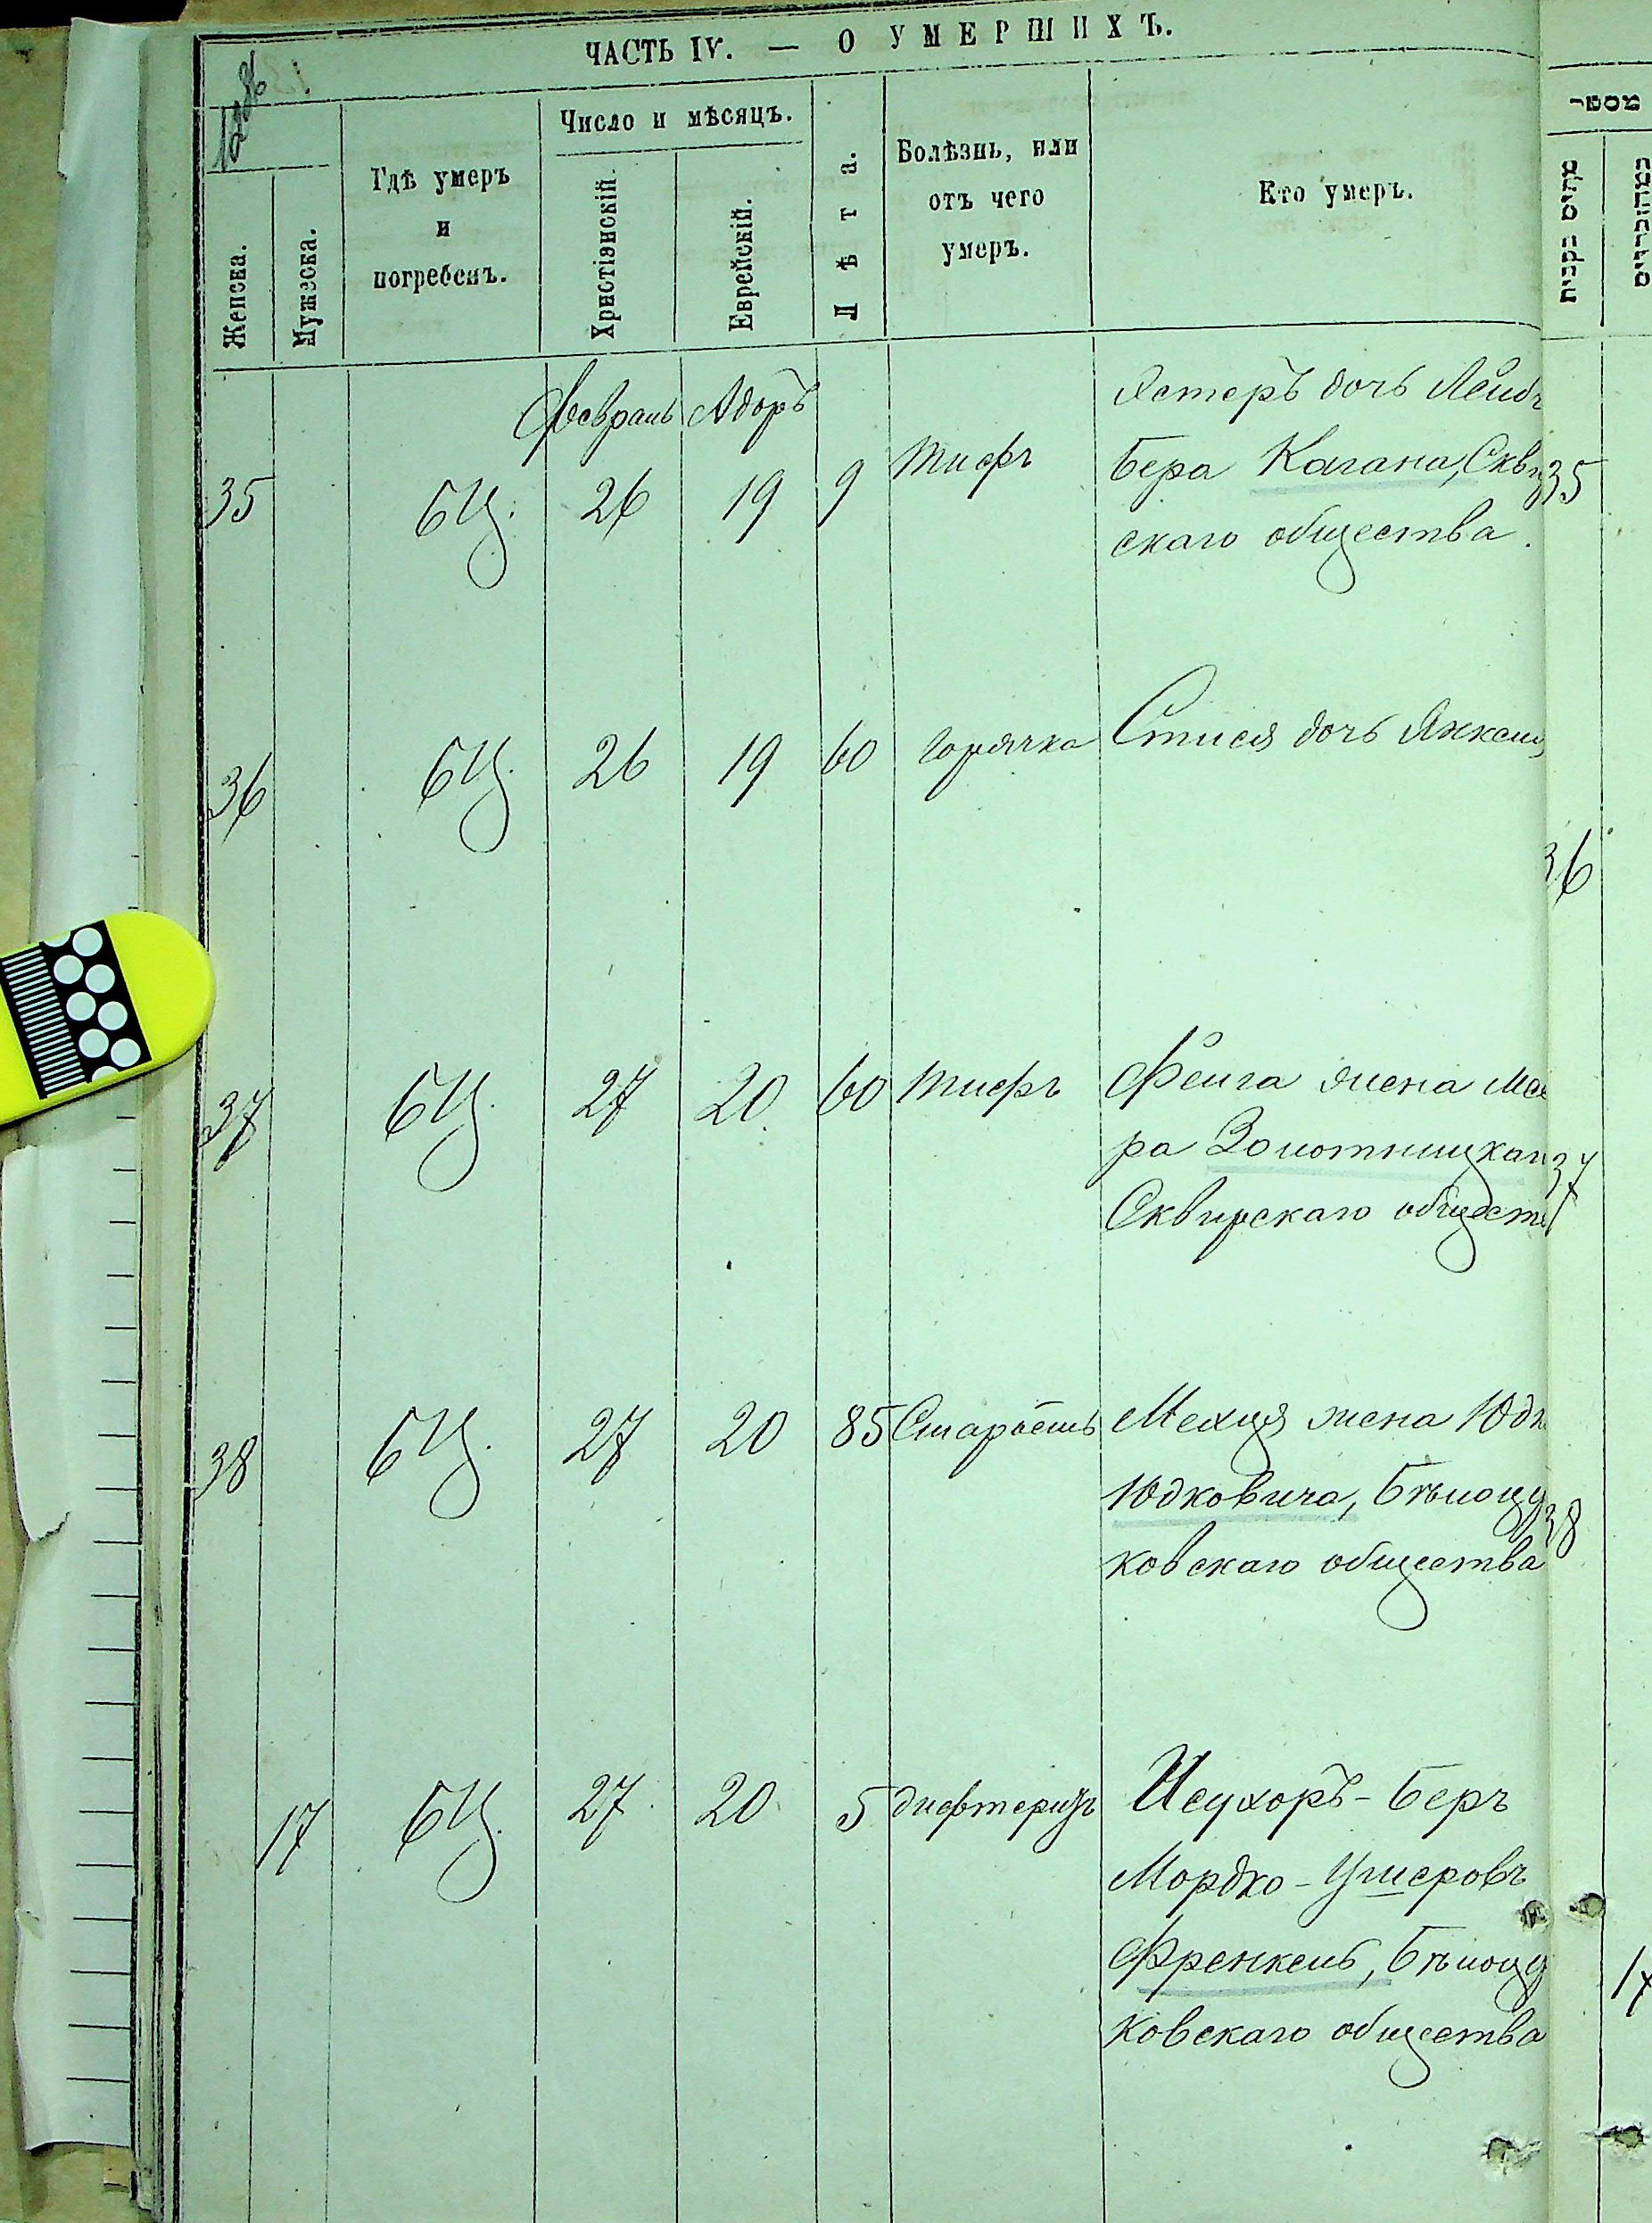 ЧАСТЬ IV. — О УМЕРШИХЪ.
Женска.
Мужеска.
Гдѣ умеръ
и
погребенъ.
Число и мѣсяцъ.
Христіанскій.
Еврейскій.
Лѣта.
Болѣзнь, или
отъ чего
умеръ.
Кто умеръ.
מספר
Февраль Адоръ
35 БЦ. 26 19 9 Тифъ
Эстеръ дочь Лейб
Бера Кагана, Скви
скаго общества.
35
36 БЦ. 26 19 60 Горячка
дочь Янкеля
36
37 БЦ. 27 20. 60 Тифъ
Фейга жена Мее
ра Золотницкаго
Сквирскаго обществ
37
38 БЦ. 27 20 85 Старость
жена Юдк
Юдковича, Бѣлоцер
ковскаго общества
38
17 БЦ. 27. 20. 5 дифтеритъ
Исухоръ-Беръ
Мордко-Ушеровъ
Френкель, Бѣлоцер
ковскаго общества
17